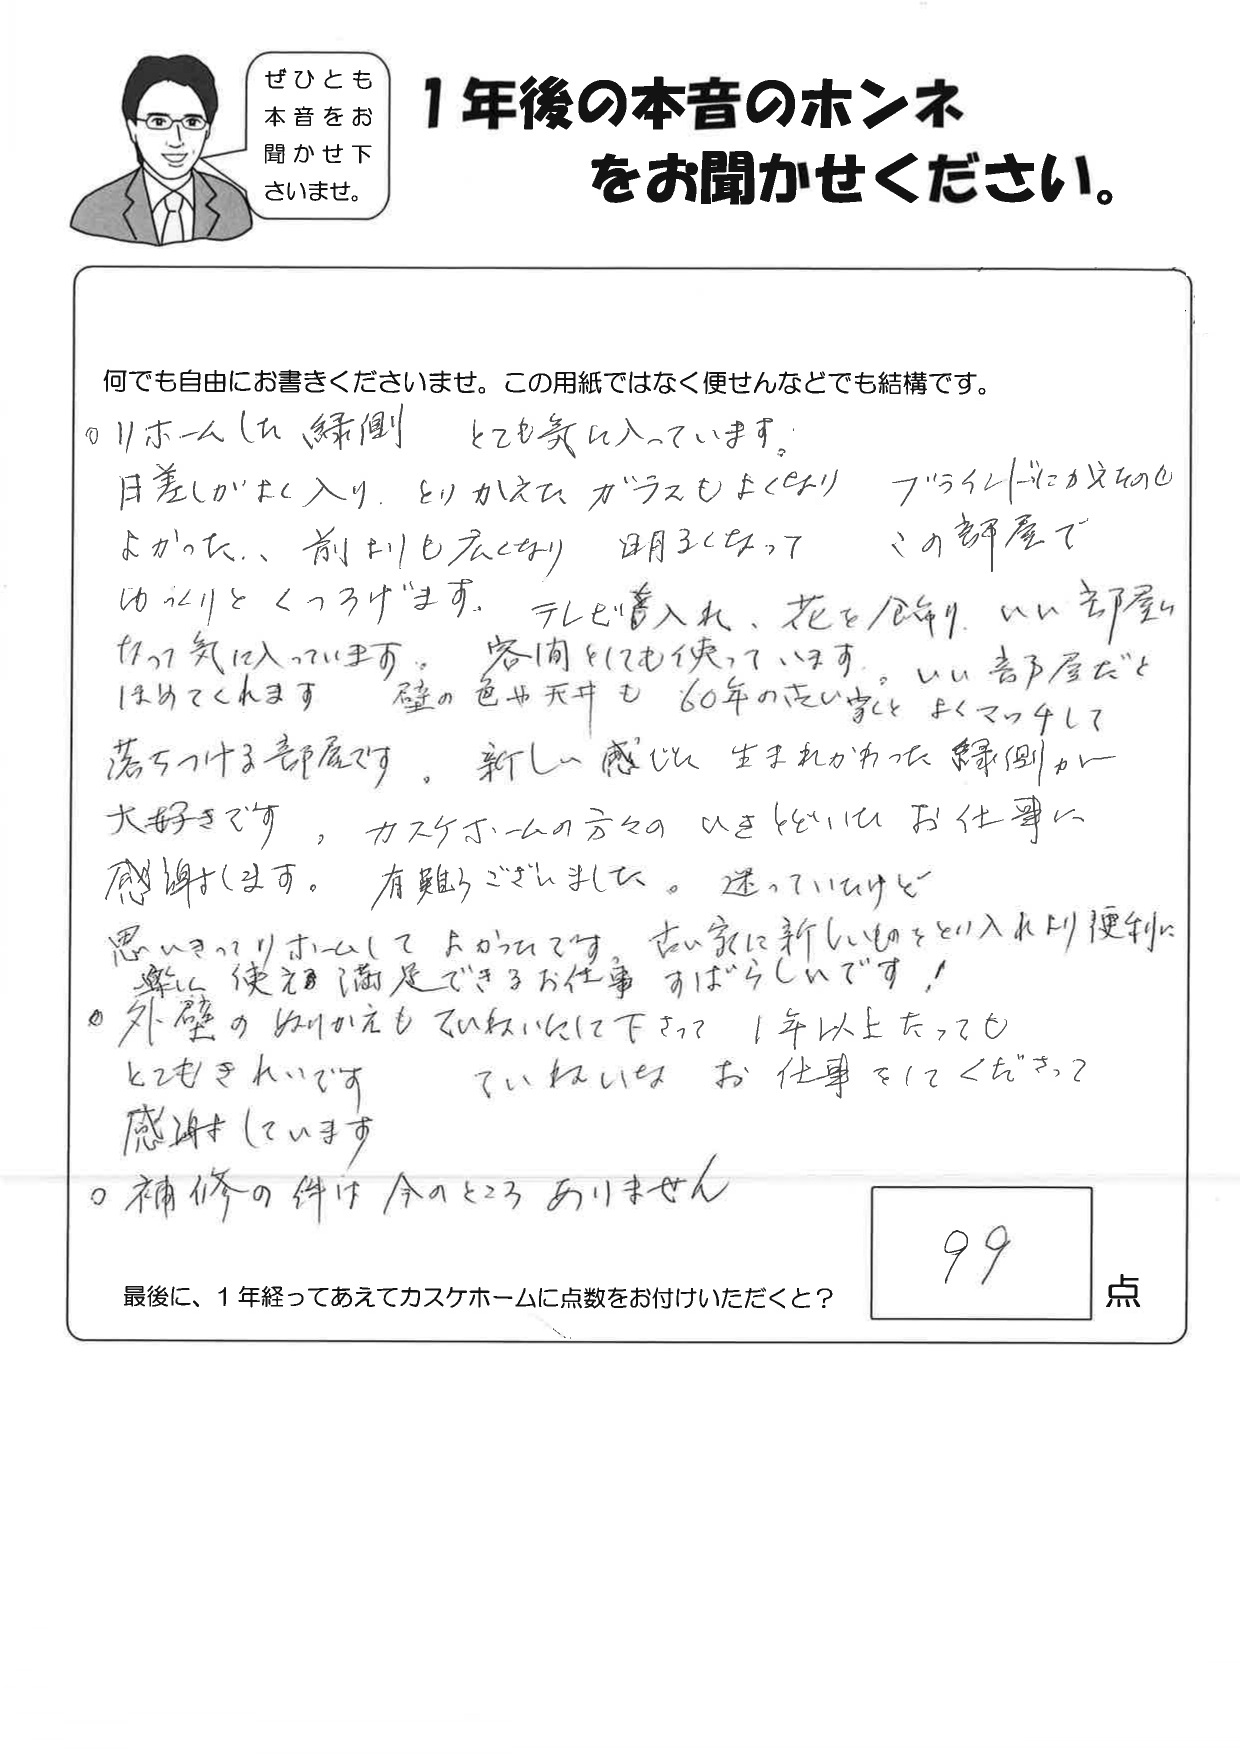 ぜひとも
本音をお
聞かせ下
さいませ。
1年後の本音のホンネ
をお聞かせください。
何でも自由にお書きくださいませ。この用紙ではなく便せんなどでも結構です。
○リホームした縁側 とても気に入っています。
日差しがよく入り、とりかえたガラスもよくなり ブラインドにかえたのも
よかった、、前よりも広くなり 明るくなって この部屋で
ゆっくりとくつろげます。テレビ入れ、花を飾り、いい部屋に
なって気に入っています。客間としても使っています。いい部屋だと
ほめてくれます 壁の色や天井も 60年の古い家とよくマッチして
落ちつける部屋です。新しい感じに生まれかわった縁側が
大好きです、カスケホームの方々のいきとどいたお仕事に
感謝します。有難うございました。迷っていたけど
思いきってリホームしてよかったです。古い家に新しいものをとり入れより便利に
楽に使える満足できるお仕事すばらしいです！
○外壁のぬりかえもていねいにして下さって 1年以上たっても
とてもきれいです ていねいなお仕事をしてくださって
感謝しています
○補修の件は今のところありません
99
最後に、1年経ってあえてカスケホームに点数をお付けいただくと？
点